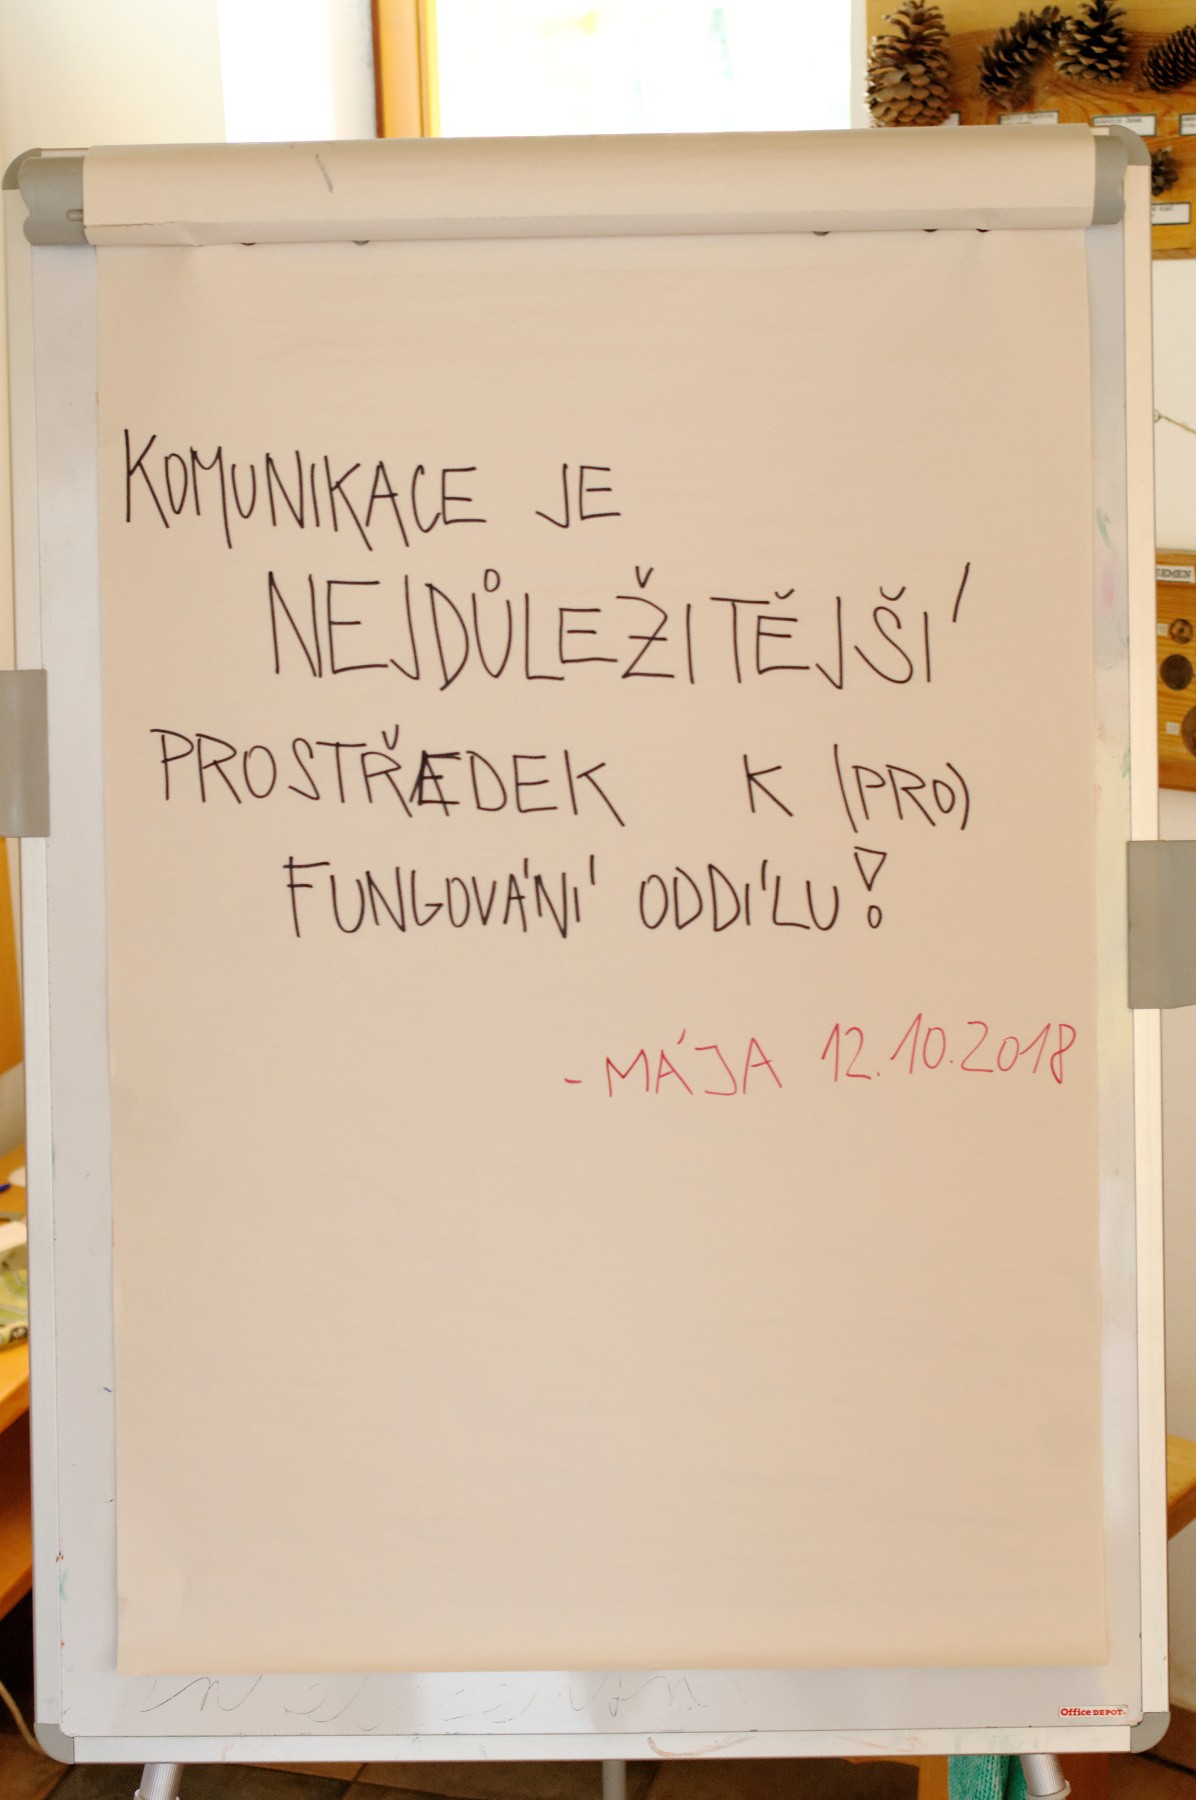 KOMUNIKACE JE
NEJDŮLEŽITĚJŠÍ
PROSTŘEDEK K (PRO)
FUNGOVÁNÍ ODDÍLU!
- MÁJA 12.10.2018
SEMEN
Office DEPOT